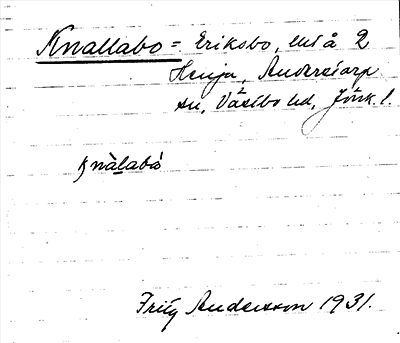 Knallabo = Eriksbo, utä å 2
Henja, Anderstorp
sn, Västbo hd, Jönk. l.
knàlabò
Fritz Andersson 1931.